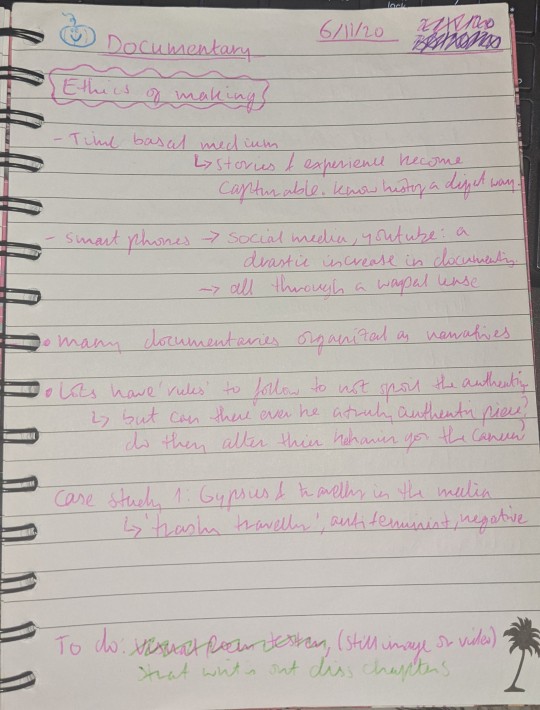 Documentary
6/11/20
Ethics of making
- Time based medium
↳ stories & experience become
capturable. know history a diff way.
- smart phones → social media, youtube: a
drastic increase in documenting
→ all through a warped lense
• many documentaries organized as narratives
• Lots have 'rules' to follow to not spoil the authenticity
↳ but can there ever be a truly authentic piece?
do they alter their behavior for the camera?
Case Study 1: Gypsies & travellers in the media
↳ 'trashy traveller', antifeminist, negative
To do: (still image or video)
start writing out diss chapters